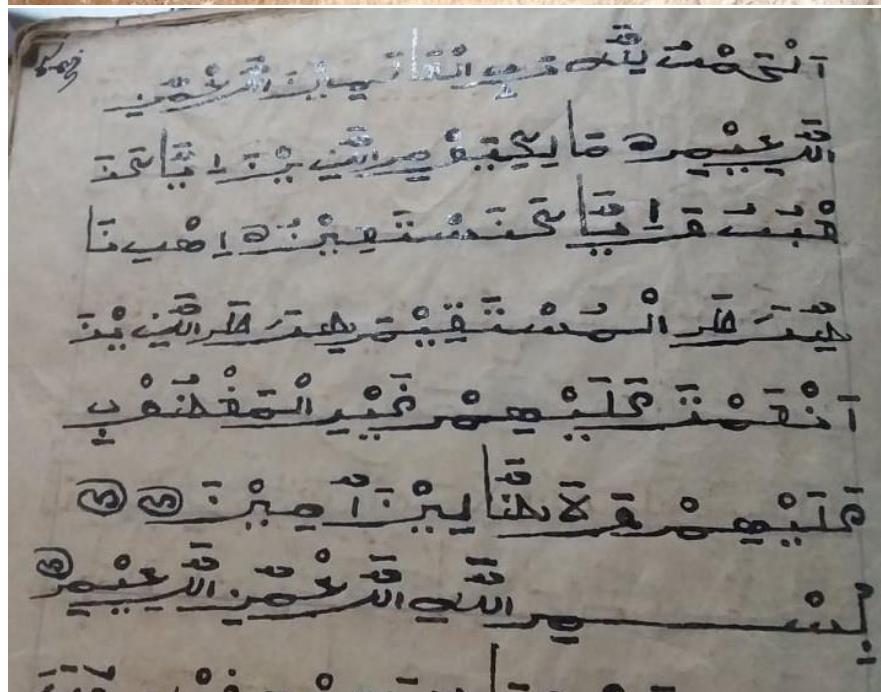 اَلْحَمْدُ لِلَّهِ رَبِّ الْعَالَمِينَ الرَّحْمَنِ
الرَّحِيْمِ ه مَالِكِ يَوْمِ الدِّيْنِ اِيَّاكَ نَ
عْبُدُ وَاِيَّاكَ نَسْتَعِيْنُ ه اِهْدِ نَا
صِّرَاطَ الْمُسْتَقِيْمَ صِرَاطَ الَّذِيْنَ
اَنْعَمْتَ عَلَيْهِمْ غَيْرِ الْمَغْضُوْبِ
عَلَيْهِمْ وَلَا ضَّالِّيْنَ آمِيْنَ
بِسْمِ اللَّهِ الرَّحْمَنِ الرَّحِيْمِ